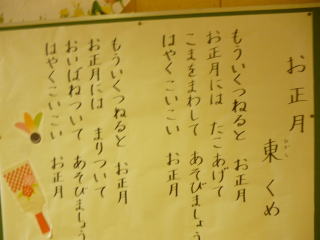 お正月
東 くめ
ひがし
もういくつねると お正月
お正月には たこあげて
こまをまわして あそびましょう
はやくこいこい お正月
もういくつねると お正月
お正月には まりついて
おいばねついて あそびましょう
はやくこいこい お正月